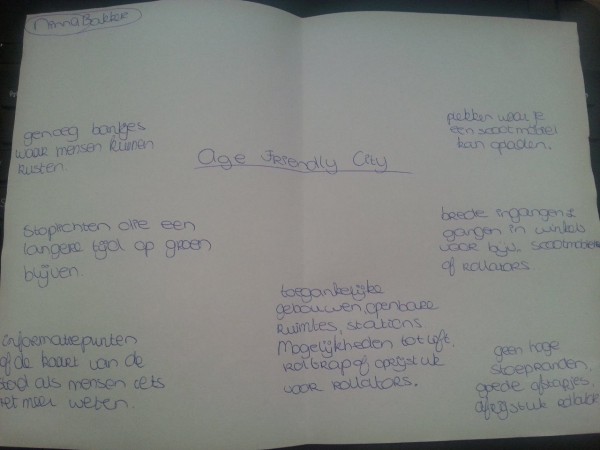 Minna Bakker
Age Friendly City
genoeg bankjes
waar mensen kunnen
rusten.
plekken waar je
een scootmobiel
kan opladen.
Stoplichten die een
langere tijd op groen
blijven.
brede ingangen &
gangen in winkels
voor bijv. scootmobiel
of rollators.
informatiepunten
of de kaart van de
stad als mensen iets
niet meer weten.
toegankelijke
gebouwen, openbare
Ruimtes, stations
Mogelijkheden tot lift,
roltrap of oprijstuk
voor rollators.
geen hoge
stoepranden,
goede afstapjes,
afrijstuk rollator